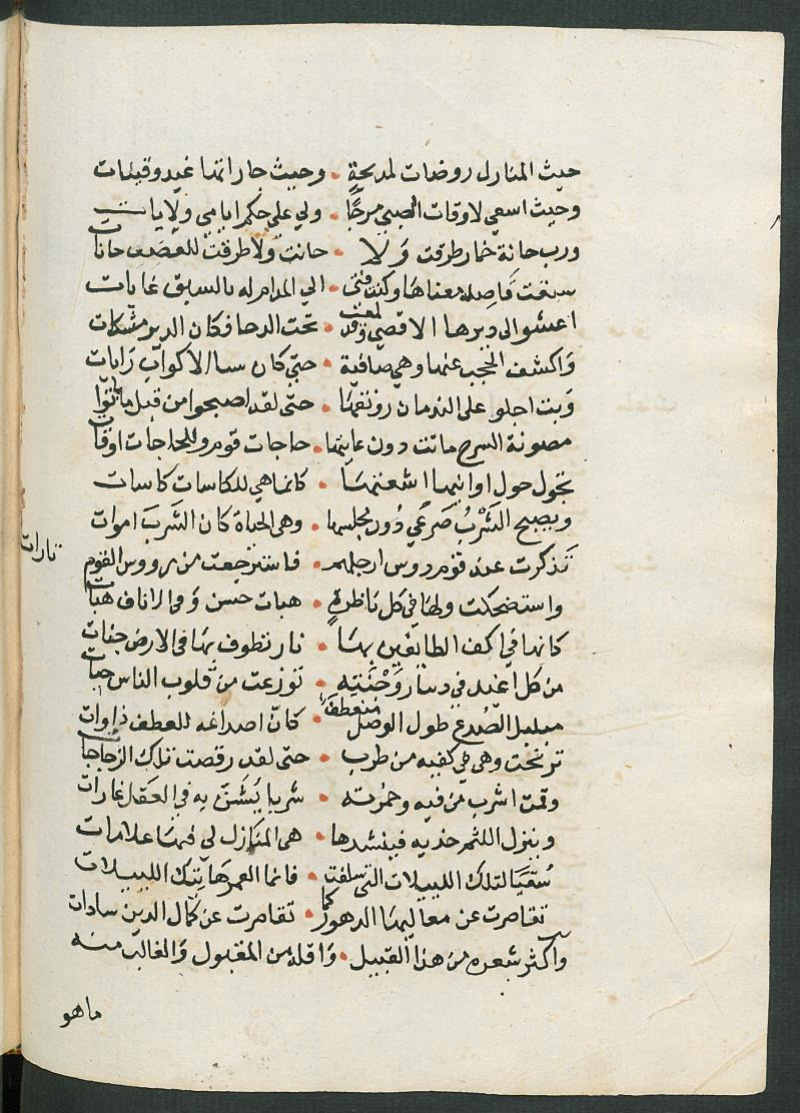 حيث المنازل روضات مدبجة • وحيث جاراتها غيد وقينات
وحيث اسعي لاوقات الصبى مرحًا • ولي على حكم ايامي ولايات
ورب حانة خمار طرقت وَلا • حانت ولا طرقت للقصف حانات
سبقت قاصد معناها وكنت فتى • الي المدام له بالسبق غايات
اعشو الى ديرها الاقصي وقد لمعت • تحت الدجا فكان الدير مشكات
وَاكشف الحجب عنها وهي صافية • حتي كان سنا الاكواب رَايات
وَبت اجلو على الندمان رونقها • حتى لقد اصبحوا من قبل ما باتوا
مصونة السرح ماتت دون غايتها • حاجات قوم وللحاجات اوقات
تجول حول اوانيها اشعتهَا • كانما هي للكاسات كاسات
ويصبح الشَرْبُ صَرْعَي دُون مجلسها • وهى الحياة كان الشَربَ اموات
تَذكرت عند قوم دوس ارجلهم • فاسترجعت من رووس القوم تارات
واستضحكت ولهَا في كل نَاظرةٍ • هبات حسن وَفي الاناف هبات
كانها في اكف الطايفين بهَا • نار تطوف بهَا في الارض جنات
من كل اغيد في دينار وَجْنَتِهِ • توزعت من قلوب الناس حبات
مبلبل الصُدغ طول الوصل منعطفٌ • كانّ اصداغه للعطف ذاوات
ترنحت وهي في كفيه من طرب • حتى لقد رقصت تلك الزجاجات
وقمت اشرب من فيه وخمرته • شربا يُشَنّ به في العَقل غارات
وينزل اللثم خديه فينشدها • هى المنَازل لي فيهَا علامات
سُقيَا لتلك اللييلات التي سلفت • فانما العمر هَاتيك اللييلات
تقاصرت عن معاليهَا الدهور كما • تقاصرت عن كمال الدين سادات
وَاكثر شعره من هذا القبيل • وَاقله من المقبول وَالغالب منه
ماهو